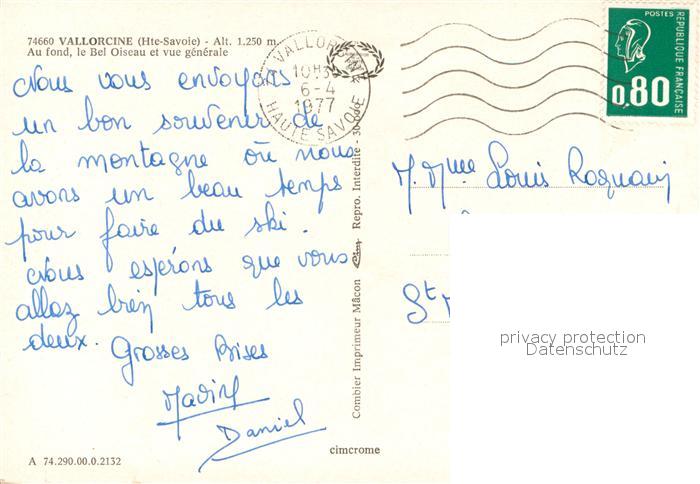 74660 VALLORCINE (Hte-Savoie) - Alt. 1.250 m.
Au fond, le Bel Oiseau et vue générale
Nous vous envoyons
un bon souvenir de
la montagne où nous
avons un beau temps
pour faire du ski.
Nous espérons que vous
allez bien tous les
deux.
Grosses Bises
Daniel
A 74.290.00.0.2132
cimcrome
Combier Imprimeur Mâcon Cim Repro. Interdite - 30
VALLORCINE
10H30
6-4
1977
HAUTE SAVOIE
POSTES
REPUBLIQUE FRANÇAISE
0,80
M. Mme Louis
St
privacy protection
Datenschutz